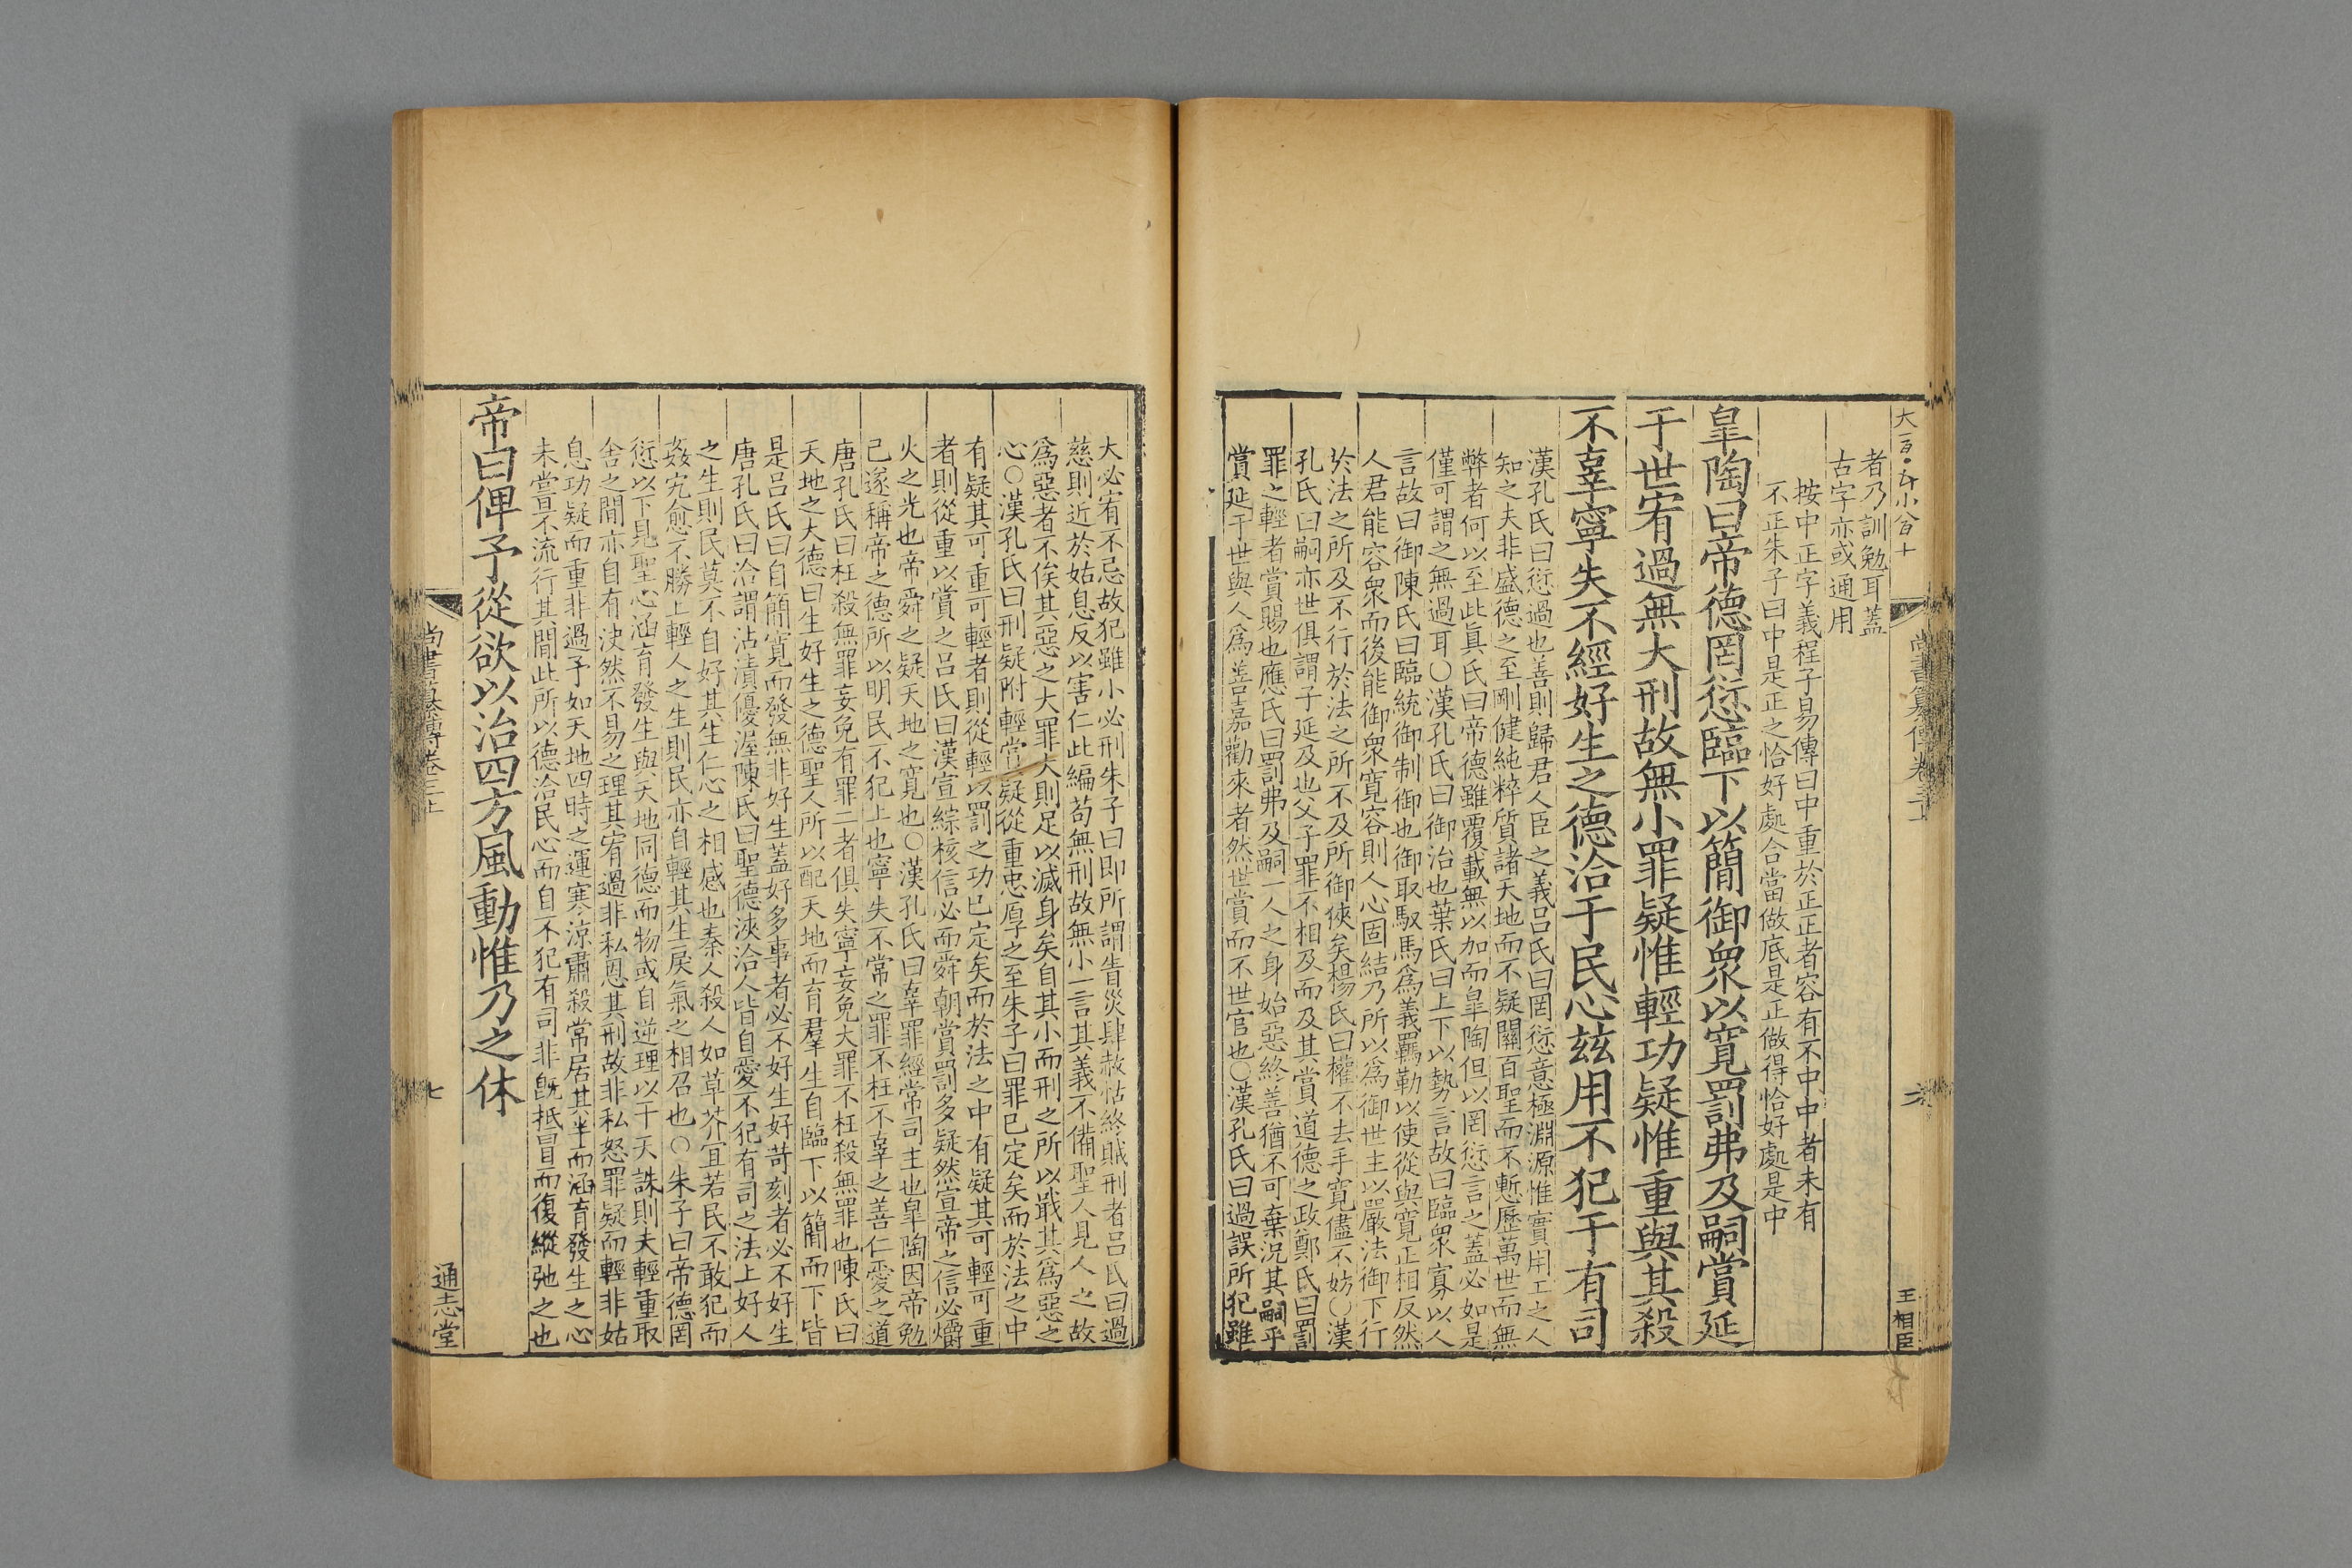 尚書纂傳卷三上
六
王相臣
者乃訓勉耳蓋
古字亦或通用
按中正字義程子易傳曰中重於正正者容有不中中者未有
不正朱子曰中是正之恰好處合當做底是正做得恰好處是中
皐陶曰帝德罔愆臨下以簡御衆以寛罰弗及嗣賞延
于世宥過無大刑故無小罪疑惟輕功疑惟重與其殺
不辜寧失不經好生之德洽于民心茲用不犯于有司
漢孔氏曰愆過也善則歸君人臣之義呂氏曰罔愆意極淵源惟實用工之人
知之夫非盛德之至剛健純粹質諸天地而不疑關百聖而不慙歷萬世而無
弊者何以至此眞氏曰帝德雖覆載無以加而皐陶但以罔愆言之蓋必如是
僅可謂之無過耳○漢孔氏曰御治也葉氏曰上下以勢言故曰臨衆寡以人
言故曰御陳氏曰臨統御制御也御取馭馬爲義羈勒以使從與寛正相反然
人君能容衆而後能御衆寛容則人心固結乃所以爲御世主以嚴法御下行
於法之所及不行於法之所不及所御狹矣楊氏曰權不去手寛儘不妨○漢
孔氏曰嗣亦世俱謂子延及也父子罪不相及而及其賞道德之政鄭氏曰罰
罪之輕者賞賜也應氏曰罰弗及嗣一人之身始惡終善猶不可棄況其嗣乎
賞延于世與人爲善嘉勸來者然世賞而不世官也○漢孔氏曰過誤所犯雖
大必宥不忌故犯雖小必刑朱子曰即所謂眚災肆赦怙終賊刑者呂氏曰過
慈則近於姑息反以害仁此編苟無刑故無小一言其義不備聖人見人之故
爲惡者不俟其惡之大罪大則足以滅身矣自其小而刑之所以戢其爲惡之
心○漢孔氏曰刑疑附輕賞疑從重忠厚之至朱子曰罪已定矣而於法之中
有疑其可重可輕者則從輕以罰之功已定矣而於法之中有疑其可輕可重
者則從重以賞之呂氏曰漢宣綜核信必而舜朝賞罰多疑然宣帝之信必爝
火之光也帝舜之疑天地之寛也○漢孔氏曰辜罪經常司主也皐陶因帝勉
己遂稱帝之德所以明民不犯上也寧失不常之罪不枉不辜之善仁愛之道
唐孔氏曰枉殺無罪妄免有罪二者俱失寧妄免大罪不枉殺無罪也陳氏曰
天地之大德曰生好生之德聖人所以配天地而育羣生自臨下以簡而下皆
是呂氏曰自簡寛而發無非好生蓋好多事者必不好生好苛刻者必不好生
唐孔氏曰洽謂沾漬優渥陳氏曰聖德浹洽人皆自愛不犯有司之法上好人
之生則民莫不自好其生仁心之相感也秦人殺人如草芥宜若民不敢犯而
姦宄愈不勝上輕人之生則民亦自輕其生戾氣之相召也○朱子曰帝德罔
愆以下見聖心涵育發生與天地同德而物或自逆理以干天誅則夫輕重取
舍之間亦自有決然不易之理其宥過非私恩其刑故非私怒罪疑而輕非姑
息功疑而重非過予如天地四時之運寒涼肅殺常居其半而涵育發生之心
未嘗不流行其間此所以德洽民心而自不犯有司非旣抵冒而復縱弛之也
帝曰俾予從欲以治四方風動惟乃之休
尚書纂傳卷三上
七
通志堂